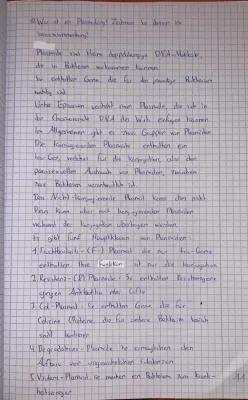 Was ist ein Plasmid? Zeichnen Sie
Plasmide sind kleine doppelsträngige DNA-Moleküle,
die in Bakterien vorkommen können.
Sie enthalten Gene, die für das jeweilige Bakterium
wichtig sind.
Unter Episomen versteht man Plasmide, die sich in
die Chromosomale DNA des Wirts einfügen können.
Im Allgemeinen gibt es zwei Gruppen von Plasmiden.
Die Konjugierende Plasmide enthalten ein
tra-Gen, welches für die Konjugation, also den
parasexuellen Austausch von Plasmiden, zwischen
zwei Bakterien verantwortlich ist.
Das Nicht-Konjugierende Plasmid kann dies nicht
kann aber mit konjugierenden Plasmiden
während der Konjugation übertragen werden.
Es gibt fünf Hauptklassen von Plasmiden:
1. Fruchtbarkeits-(F-) Plasmid die nur tra-Gene
enthalten. Ihre Funktion ist nur die Konjugation
2. Resistenz-(R) Plasmide: Sie enthalten Resistenzgene
gegen Antibiotika oder Gifte
3. Col-Plasmid: Sie enthalten Gene die für
Colicine (Proteine, die für andere Bakterien toxisch
sind) kodieren
4. Degradations-Plasmide Sie ermöglichen den
Abbau von ungewöhnlichen Substanzen
5. Virulenz-Plasmid: sie machen ein Bakterium zum Krank-
heitserreger